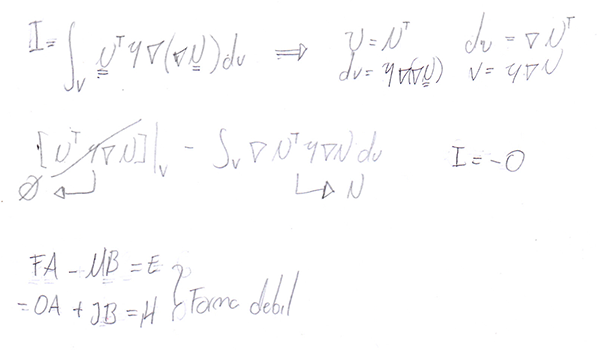 I = ∫_V N^T Y ∇(∇N) dv ⇒ U = N^T du = ∇N^T
dv = Y∇(∇N) V = Y∇N
[N^T Y∇N]|_V - ∫_V ∇N^T Y∇N dv I = -O
∅ ← → N
FA - MB = E
= OA + JB = H } Forma debil